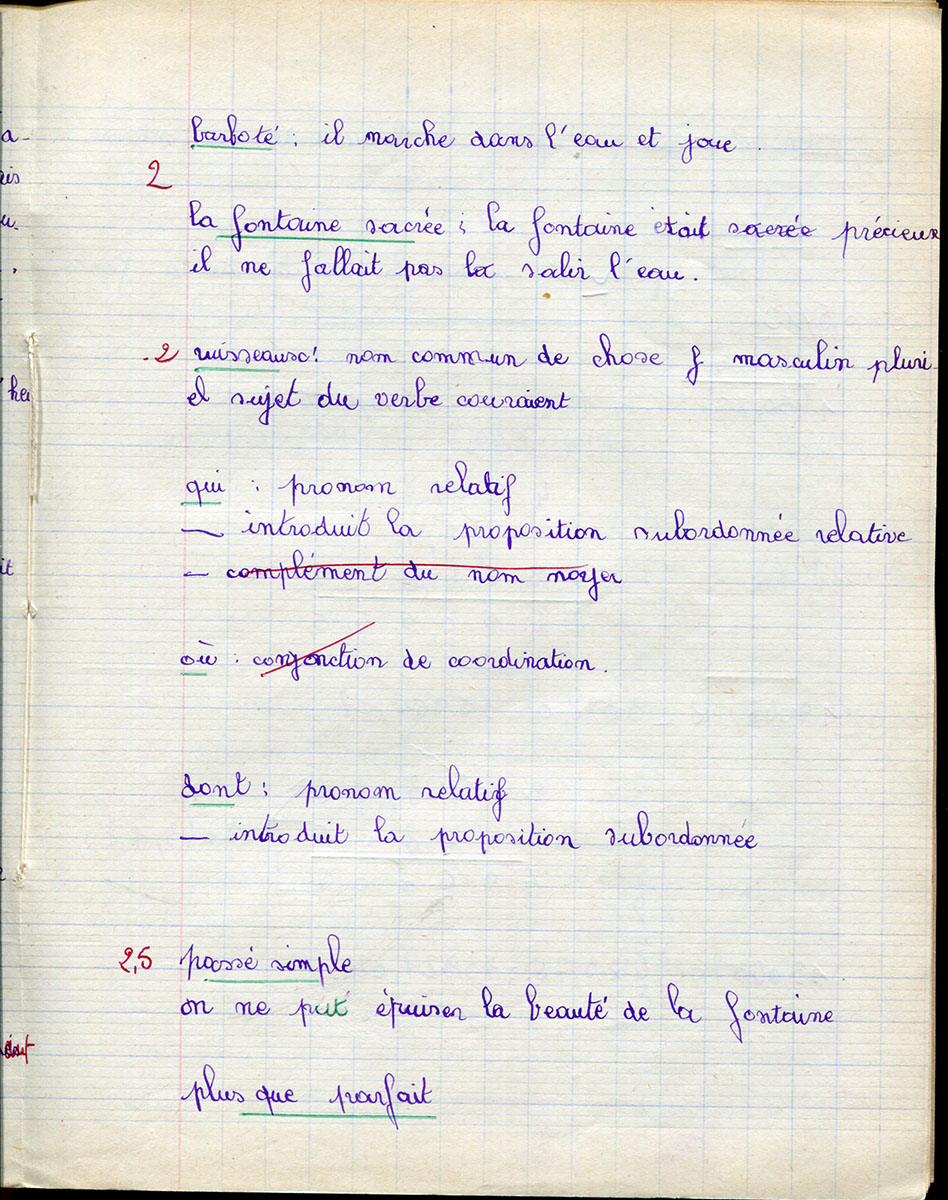 barboté : il marche dans l'eau et joue.
2
la fontaine sacrée ; la fontaine était sacrée précieux
il ne fallait pas la salir l'eau.
2 ruisseaux : nom commun de chose masculin pluri-
el sujet du verbe couraient
qui : pronom relatif
— introduit la proposition subordonnée relative
— complément du nom noyer
où : conjonction de coordination.
dont : pronom relatif
— introduit la proposition subordonnée
2,5 passé simple
on ne put épuiser la beauté de la fontaine
plus que parfait